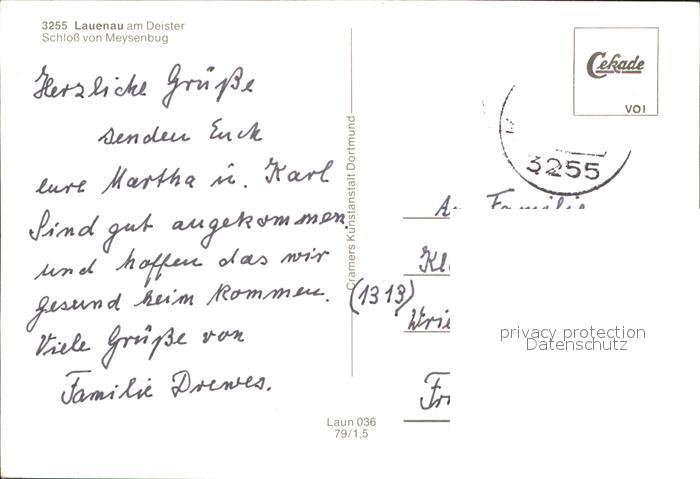 3255 Lauenau am Deister
Schloß von Meysenbug
Herzliche Grüße
senden Euch
eure Martha u. Karl
Sind gut angekommen
und hoffen das wir
gesund heim kommen.
Viele Grüße von
Familie Drewes.
Cramers Kunstanstalt Dortmund
Laun 036
79/1,5
Cekade
VOI
3255
An Familie
(1313)
privacy protection
Datenschutz